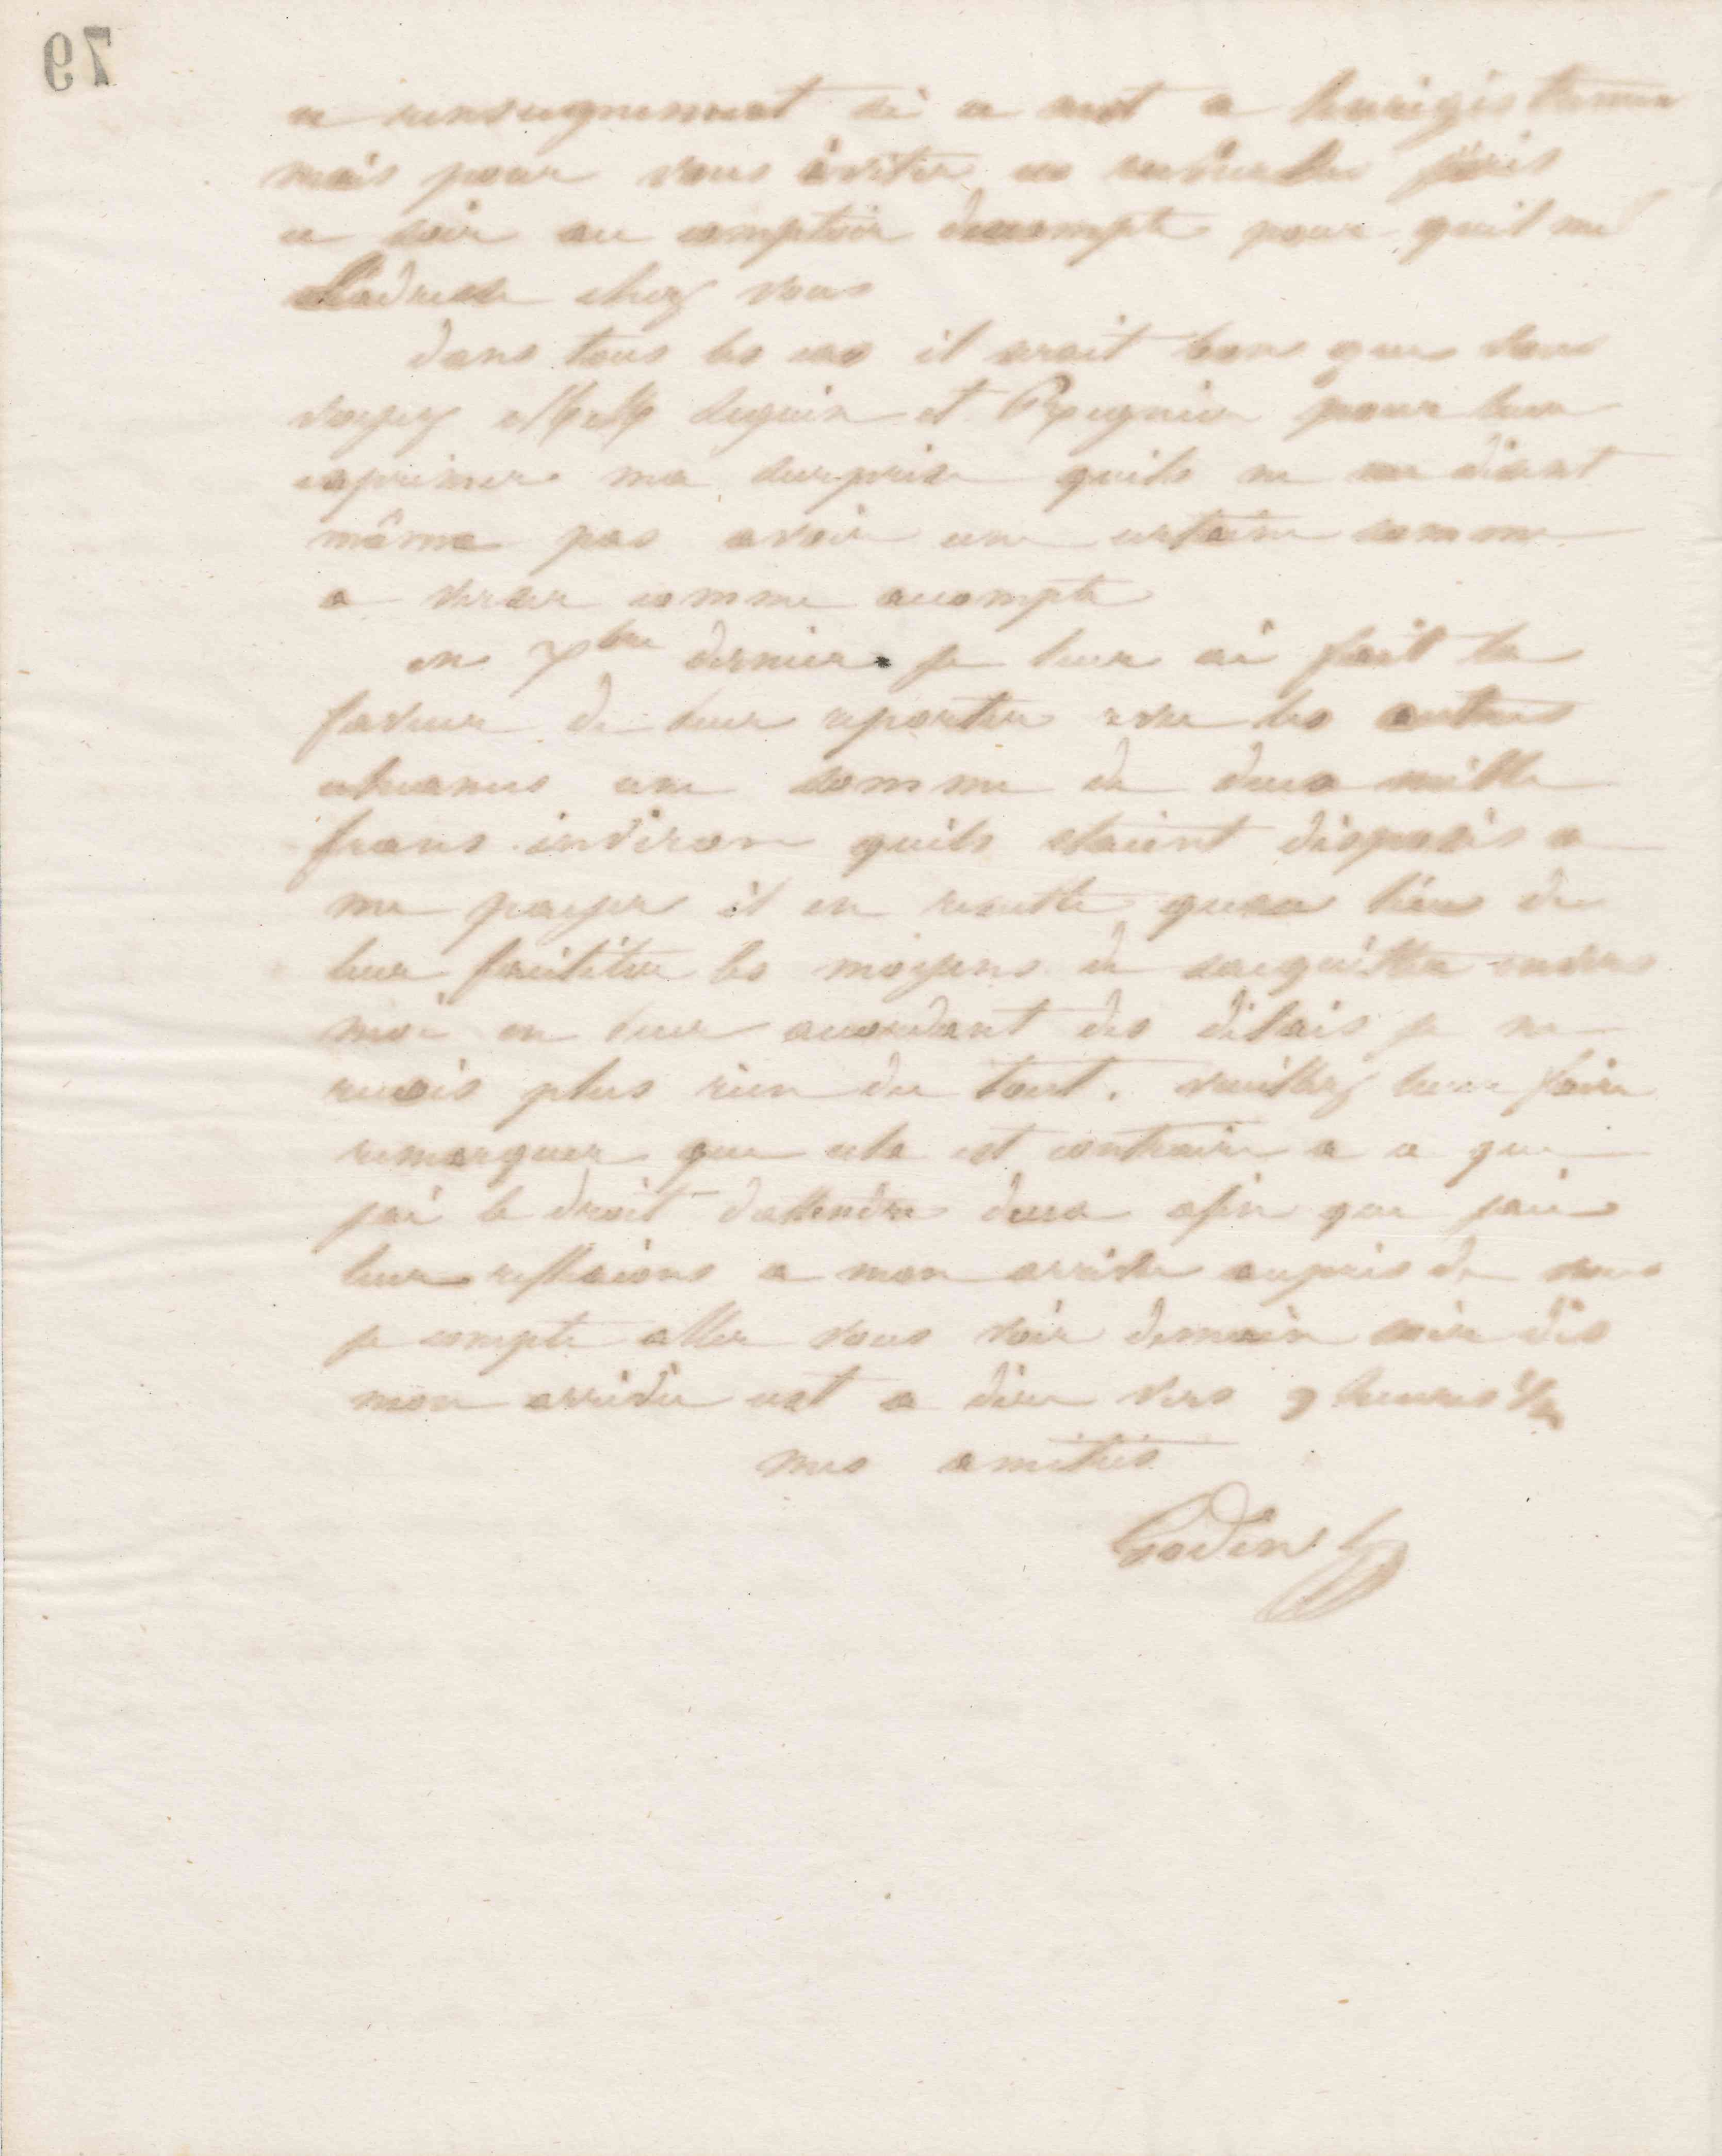 79
ce renseignement si ce nest a lenregistrement
mais pour vous éviter ces recherches jécris
ce soir au comptoir descompte pour quil me
ladresse chez vous
dans tous les cas il serait bon que vous
voyez MM Seguin et Regnier pour leur
exprimer ma surprise quils ne me disent
même pas avoir une certaine somme
a verser comme accompte
en Xbre dernier je leur ai fait la
faveur de leur reporter avec les autres
creances une somme de deux mille
francs environ quils etaient disposés a
me payer il en resulte quau lieu de
leur faciliter les moyens de sacquitter envers
moi en leur accordant des délais je ne
recois plus rien du tout. veuillez leur faire
remarquer que cela est contraire a ce que
jai le droit dattendre deux afin que jaie
leurs reflexions a mon arrivée auprès de vous
je compte aller vous voir demain soir dès
mon arrivée cest a dire vers 9 heures ½
mes amitiés
Godin